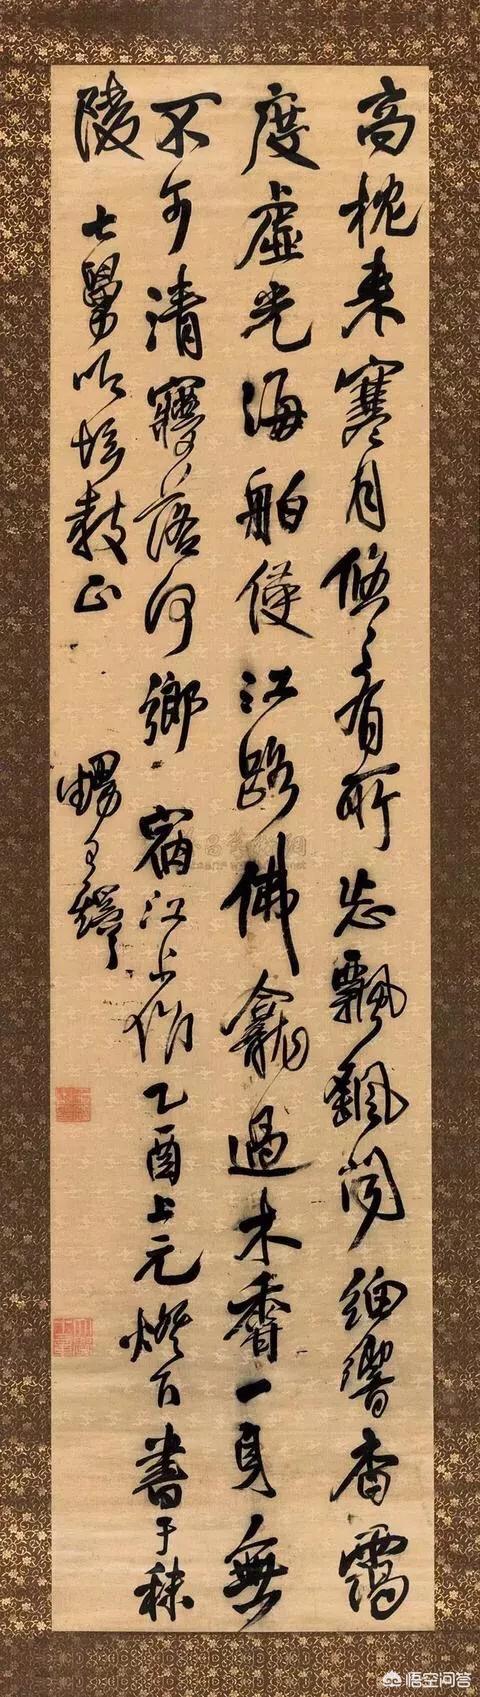 高枕來寒月悠悠有所忘飄飄聞細響杳靄
度虛光海舶侵江路佛龕過木香一身無
不可清夢落何鄉 宿江上作乙酉上元燈下書于秣
陵 七舅吟壇教正 甥王鐸
悟空问答